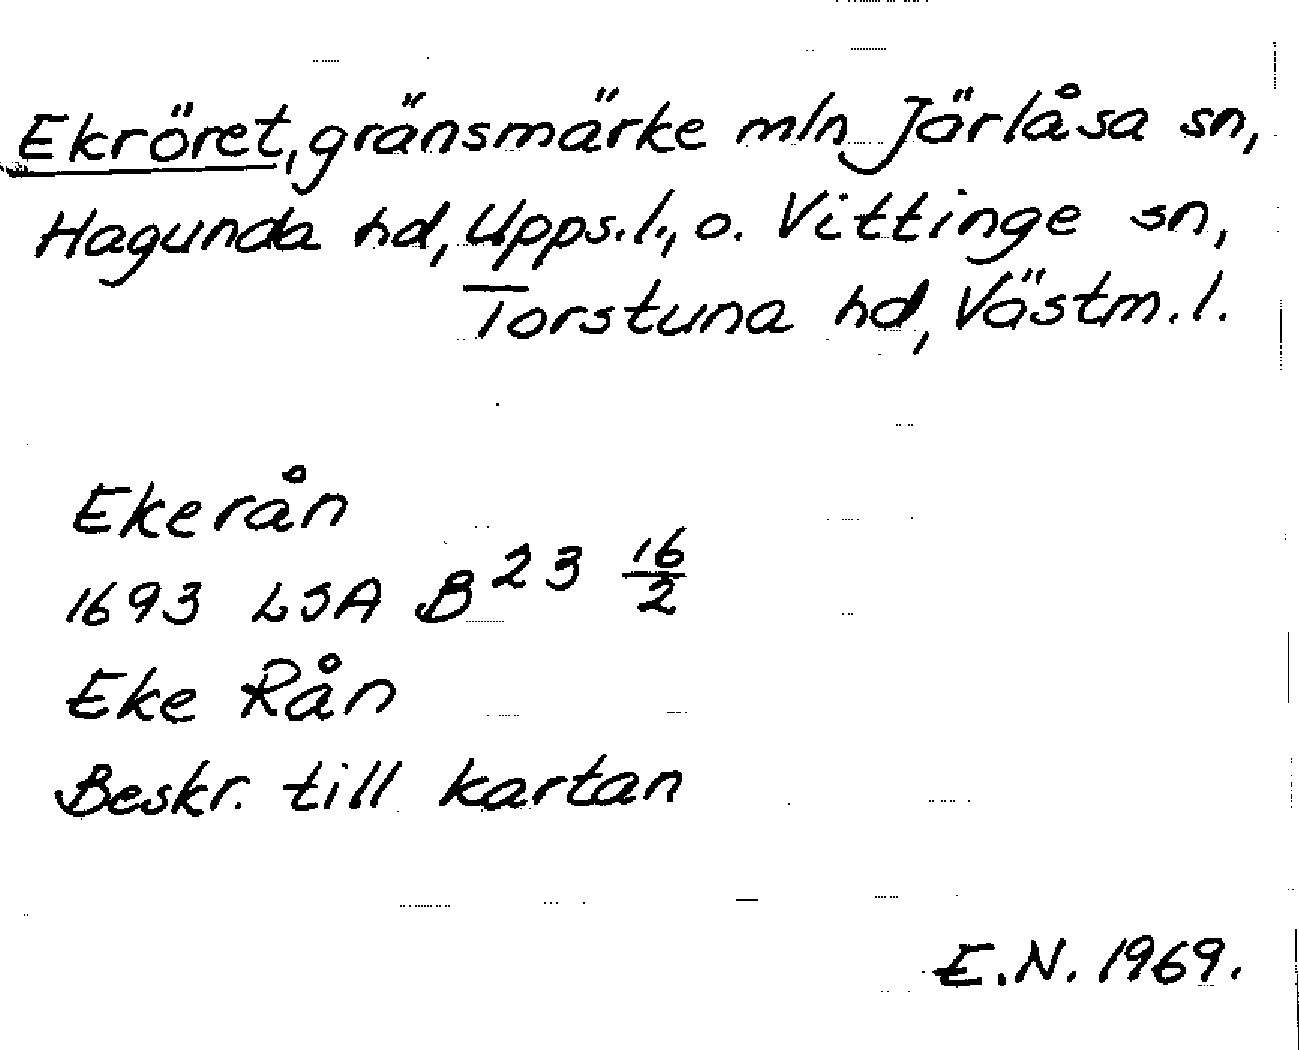 Ekröret, gränsmärke mln Järlåsa sn,
Hagunda hd, Upps.l., o. Vittinge sn,
Torstuna hd, Västm.l.
Ekerån
1693 LSA B 23 16/2
Eke Rån
Beskr. till kartan
E.N. 1969.